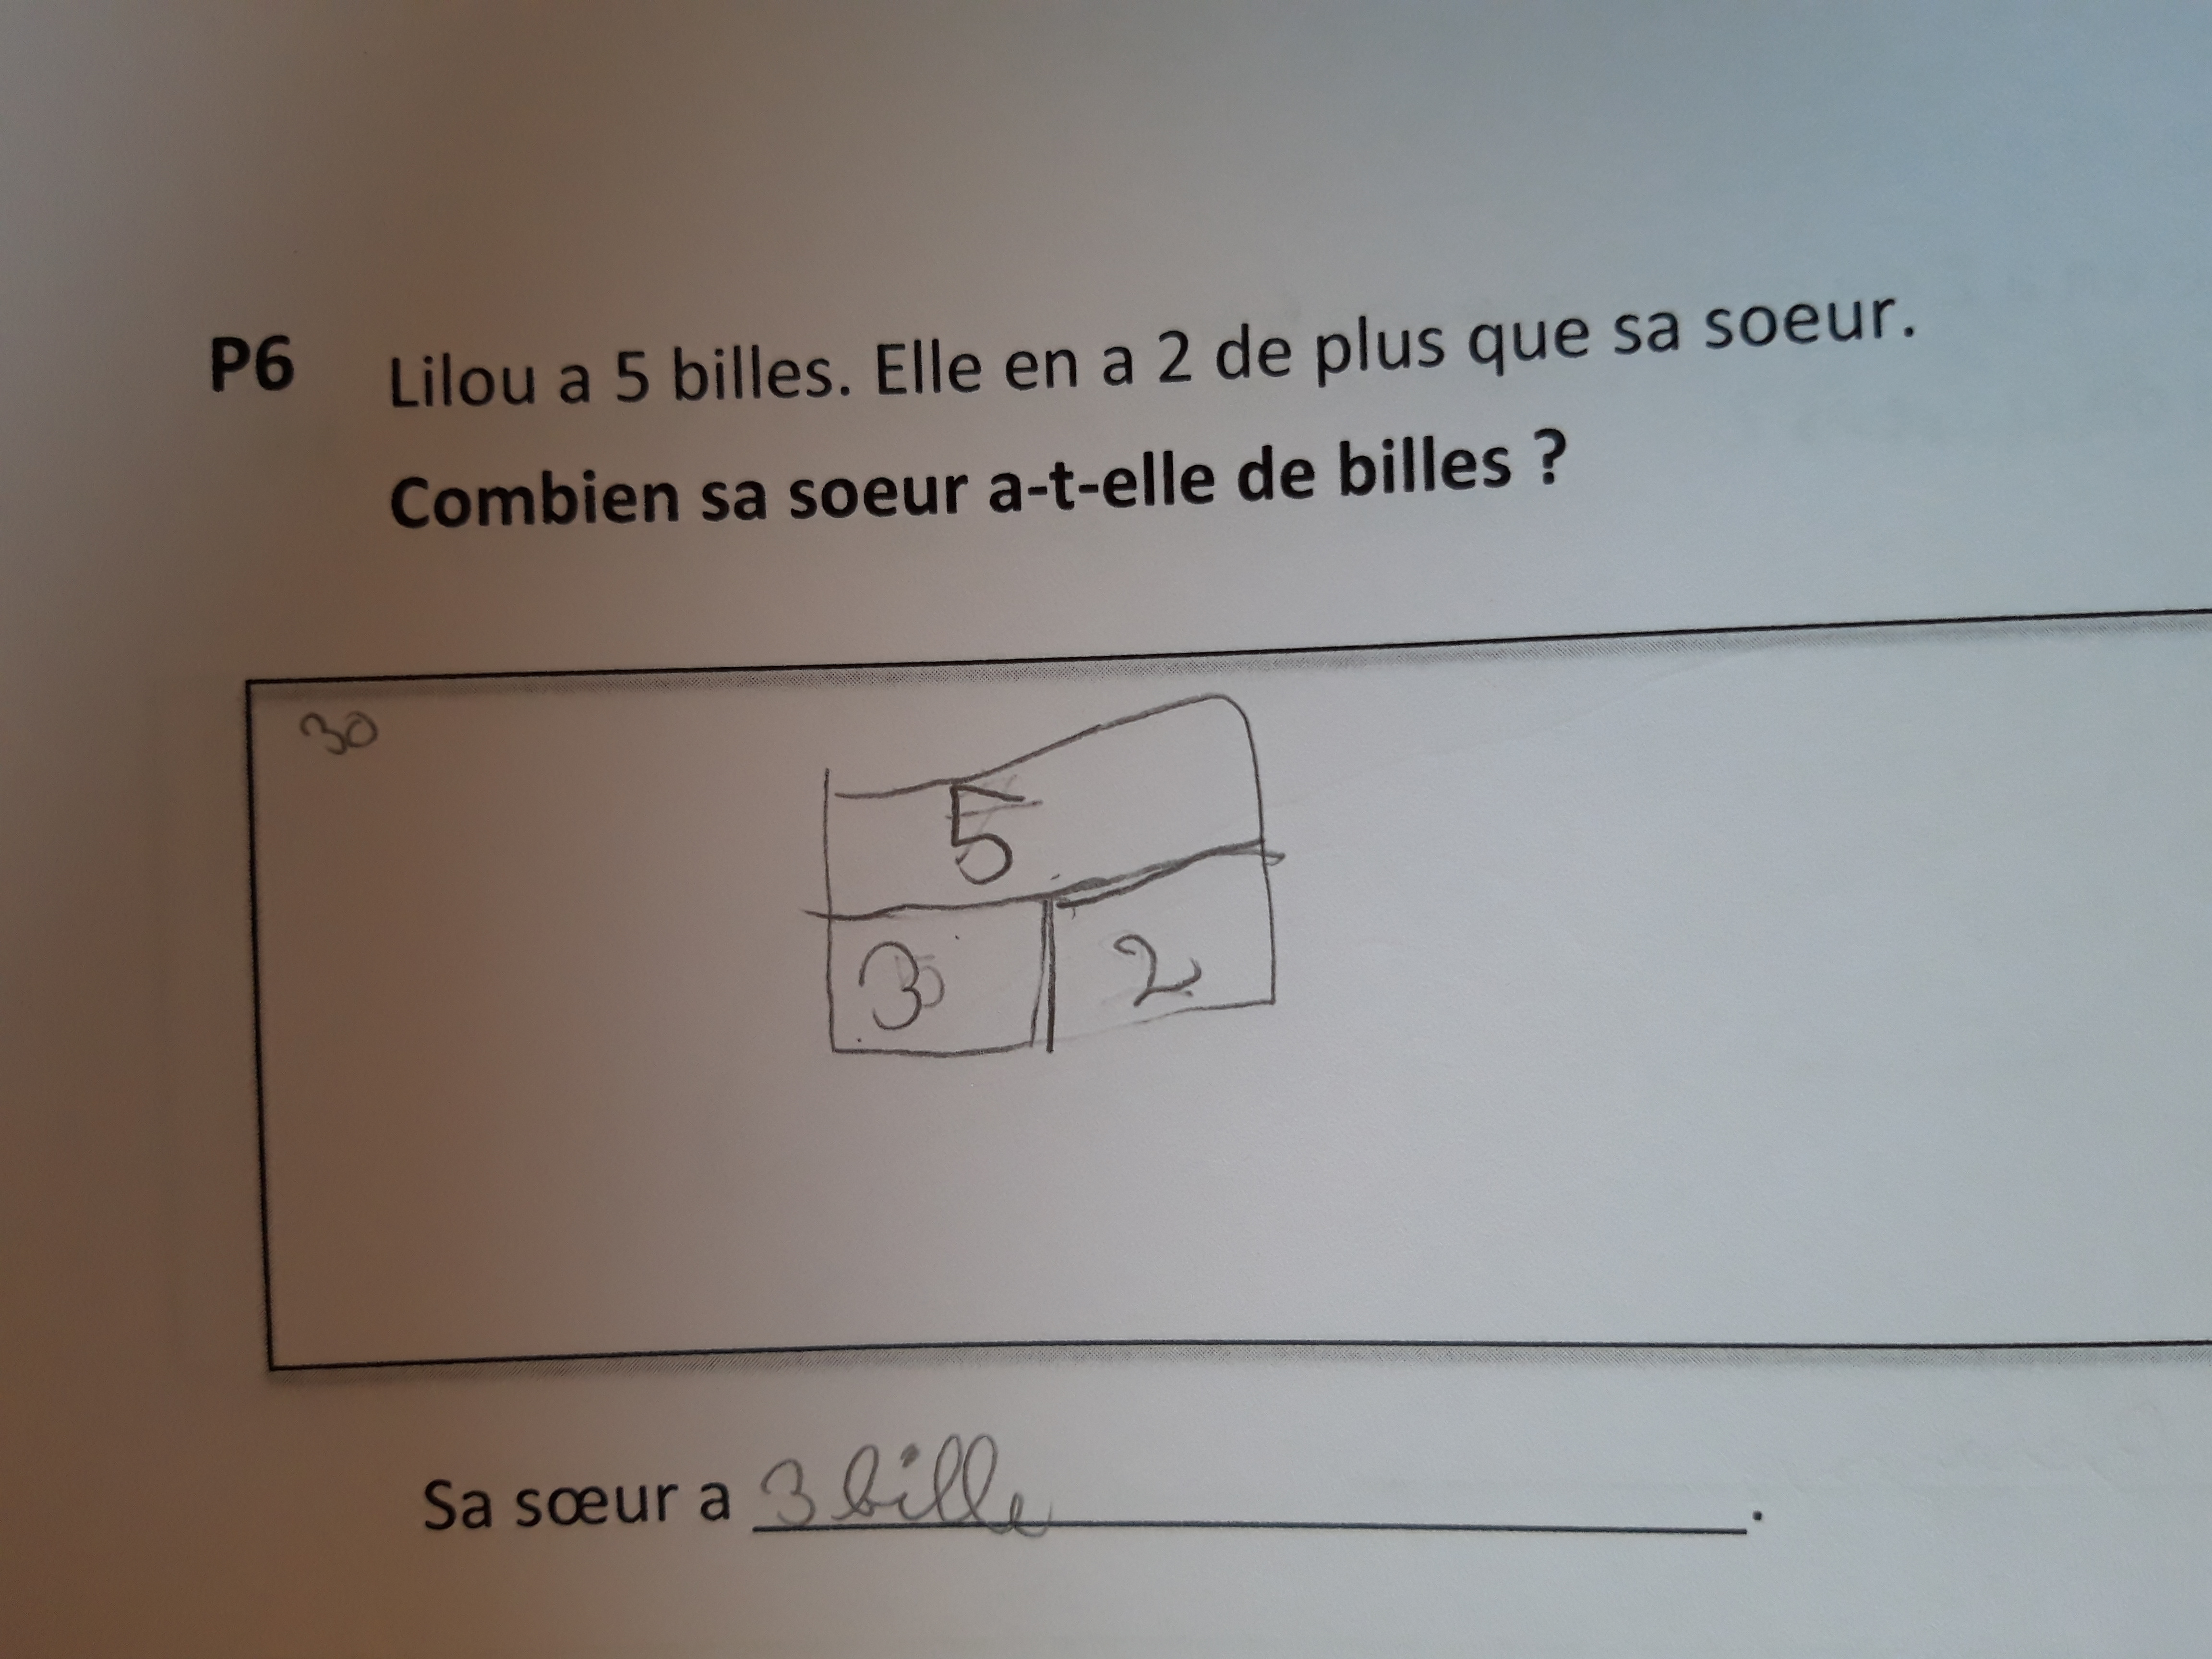 P6 Lilou a 5 billes. Elle en a 2 de plus que sa soeur.
Combien sa soeur a-t-elle de billes ?
30
5
3 2
Sa sœur a 3 bille.